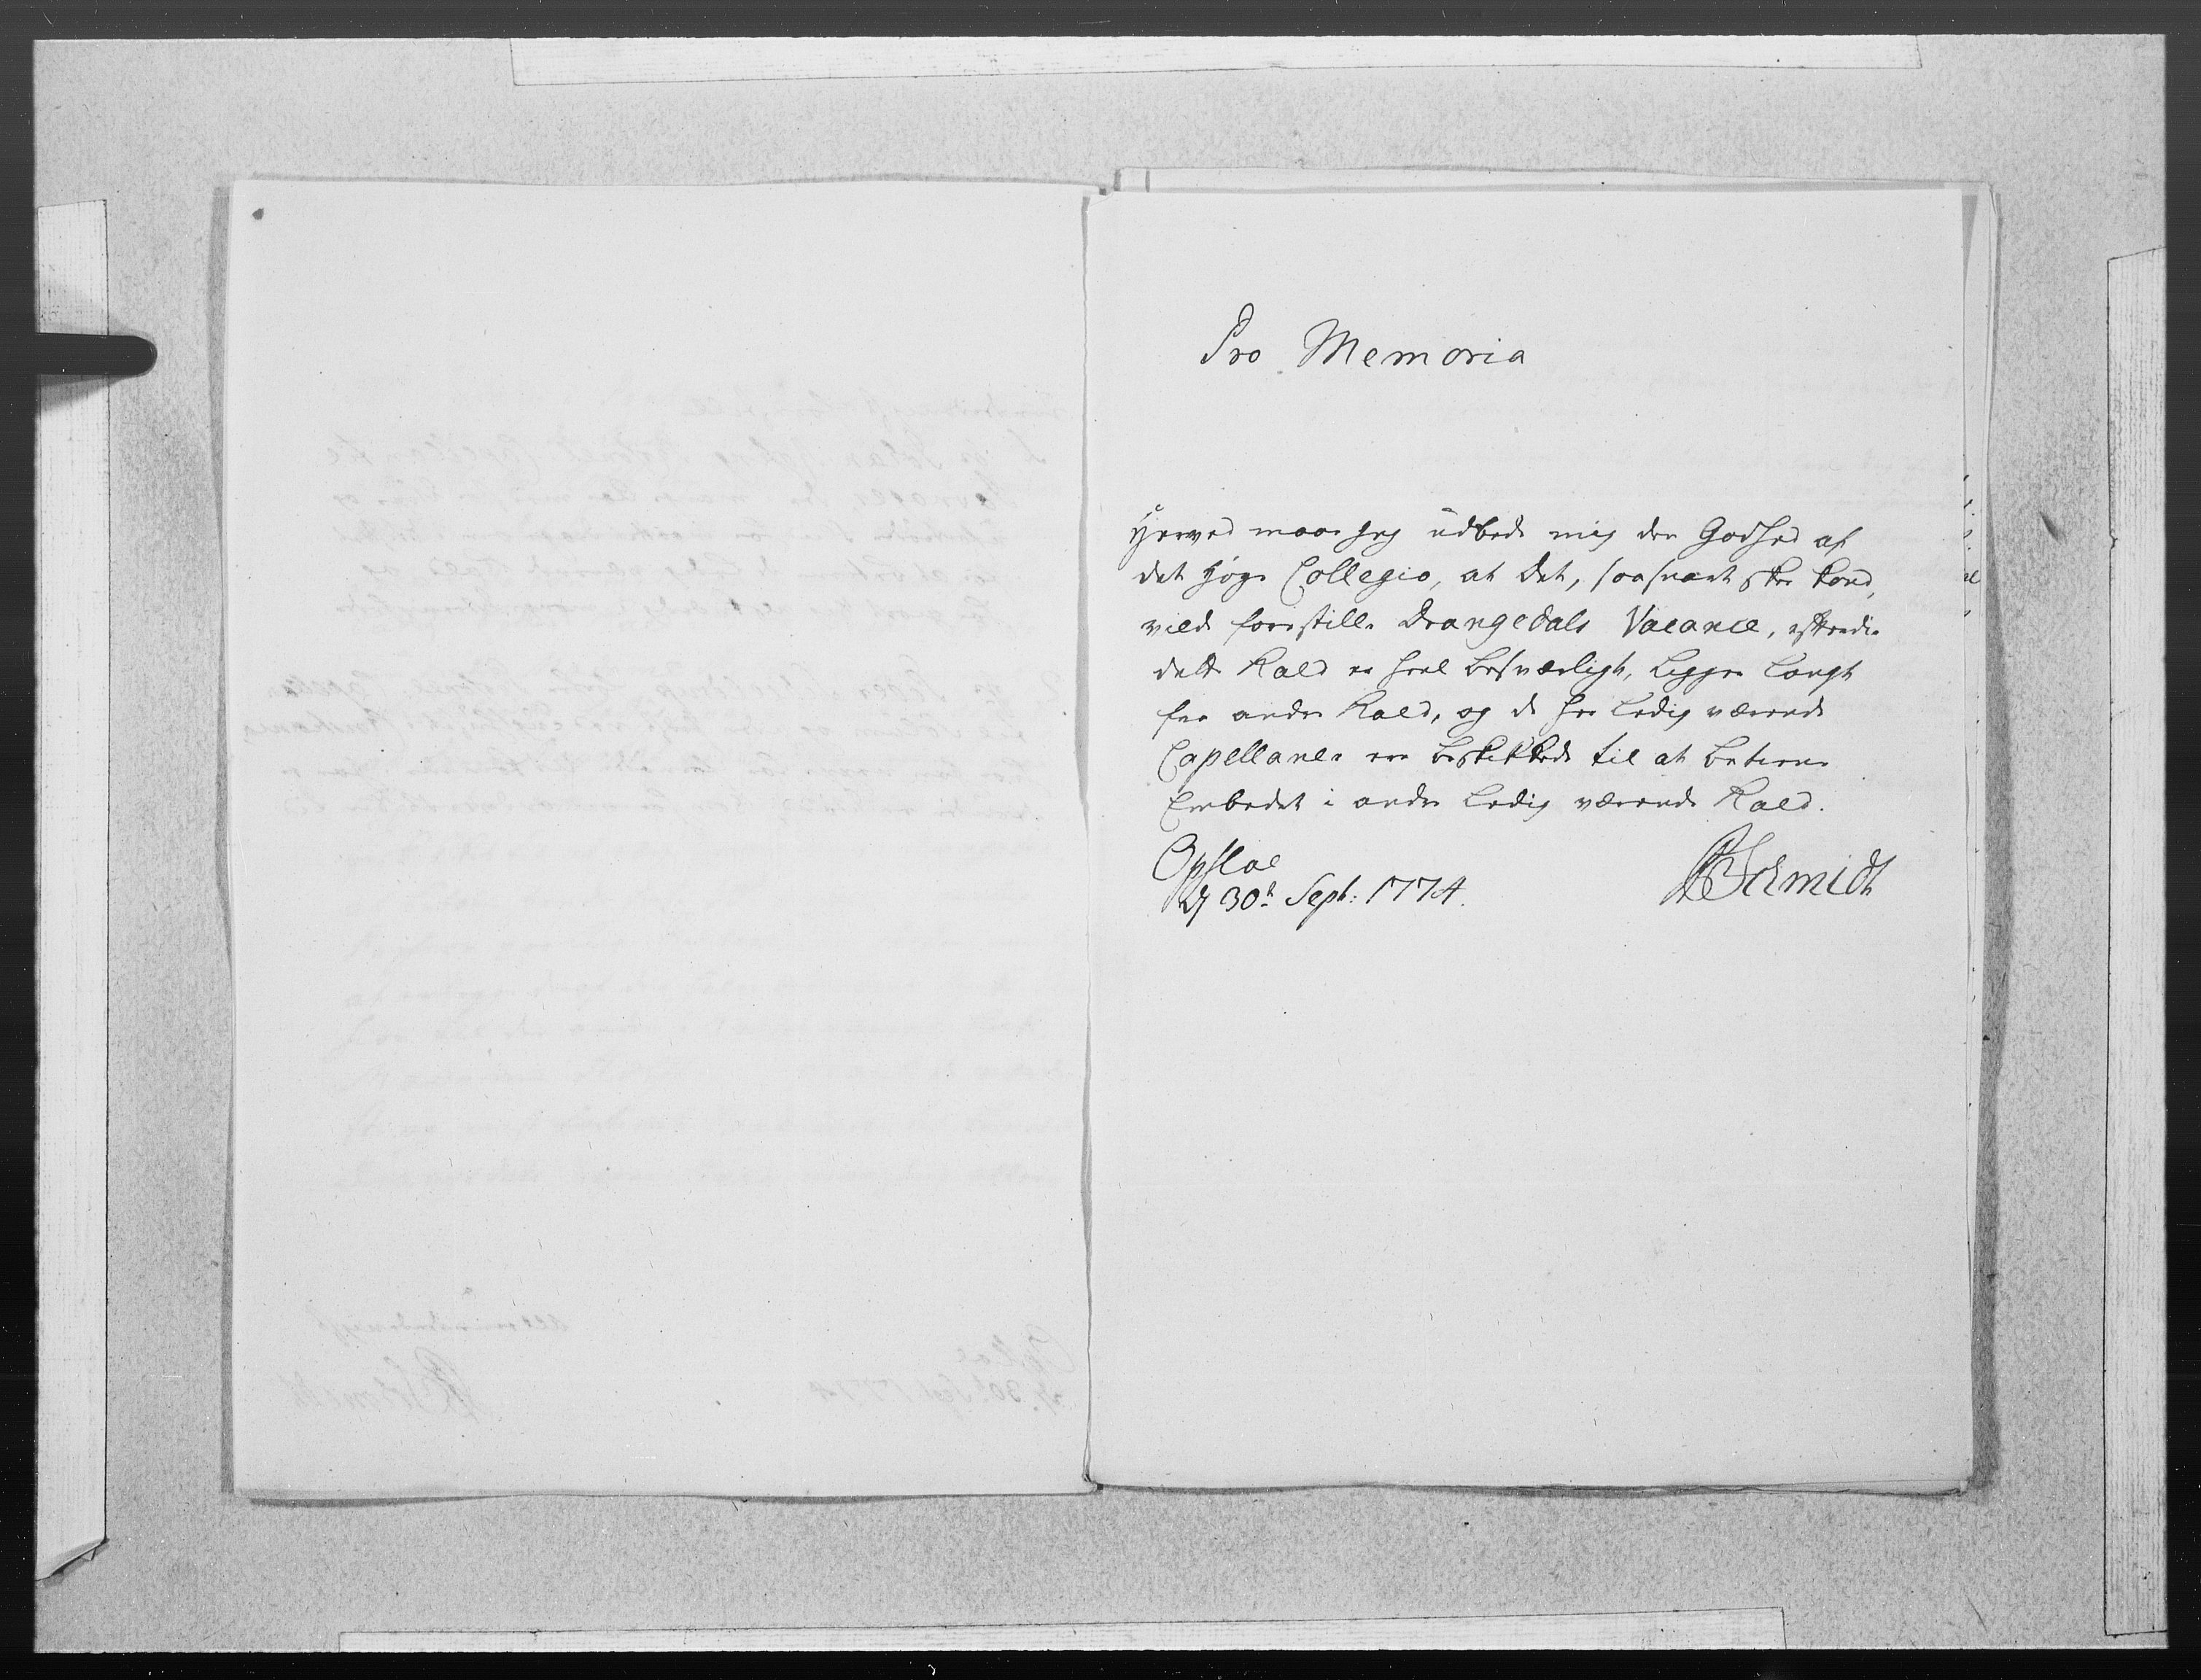 Pro Memoria
Herved maae jeg udbede mig den Godhed af
det høye Collegio, at det, saasnart skee kand,
vilde forestille Drangedals Vacance, efterdi
dette Kald er heel besværligt, ligger langt
fra andre Kald, og de her ledig værende
Capellaner ere beskikkede til at betiene
Embedet i andre ledig værende Kald.
Opsloe
d 30t Sept: 1774.
FSchmidt